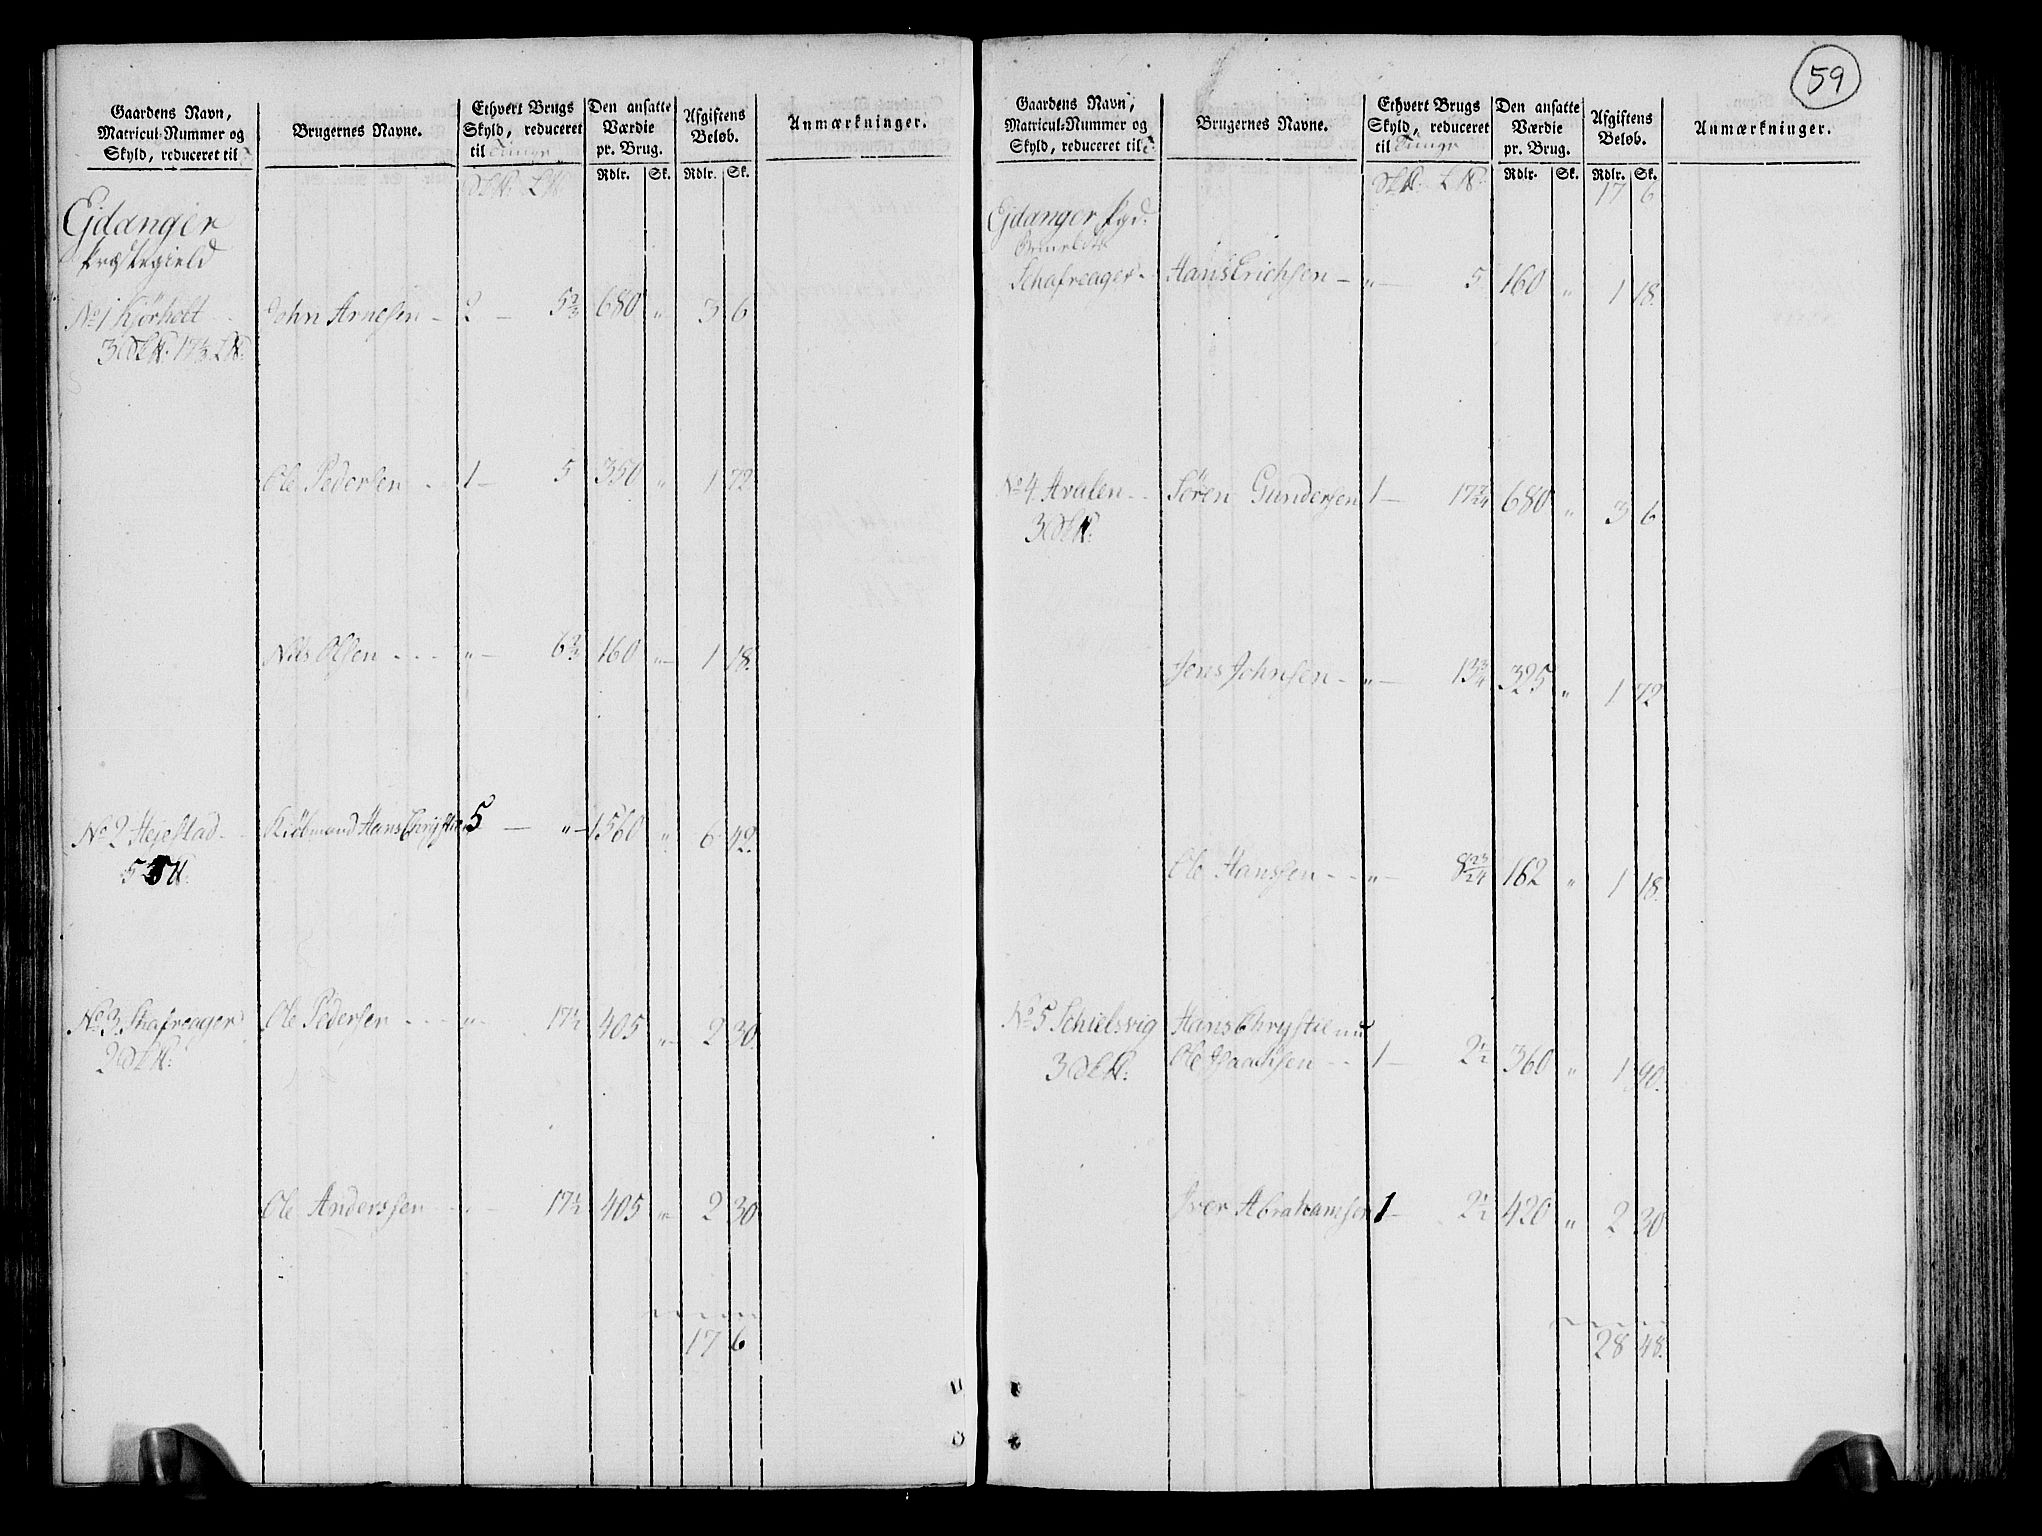 59
Gaardens Navn, Matricul-Nummer og Skyld, reduceret til
Brugernes Navne.
Ethvert Brugs Skyld, reduceret til Tunge
Den ansatte Værdie pr. Brug.
Afgiftens Beløb.
Anmærkninger.
Rdlr. Sk. Rdlr. Sk.
Ejdanger
Præstegield
No 1 Kjørholt John Arnesen 2 5 2/3 680 " 3 6
Ole Pedersen 1 5 350 " 1 72
Nils Olsen " 6 2/3 160 " 1 18
No 2 Hejestad Kiøbmand Hans Chrystie 5 " 1560 " 6 42
No 3 Skafreager Ole Pedersen " 17 1/2 405 " 2 30
Ole Anderssen " 17 1/2 405 " 2 30
17 6
Gaardens Navn, Matricul-Nummer og Skyld, reduceret til
Brugernes Navne.
Ethvert Brugs Skyld, reduceret til Tunge
Den ansatte Værdie pr. Brug.
Afgiftens Beløb.
Anmærkninger.
Rdlr. Sk. Rdlr. Sk.
17 6
Ejdanger Pgd:
Schafreager Hans Erichsen " 5 160 " 1 18
No 4 Hvalen Søren Gundersen 1 680 " 3 6
Jens Johnsen " 13 3/4 325 " 1 72
Ole Hanssen " 8 23/24 162 " 1 18
No 5 Schielsvig Hans Chrystie nu
Ole Isaachsen 1 2 1/2 360 " 1 90
Iver Abrahamsen 1 2 1/2 420 " 2 30
28 48